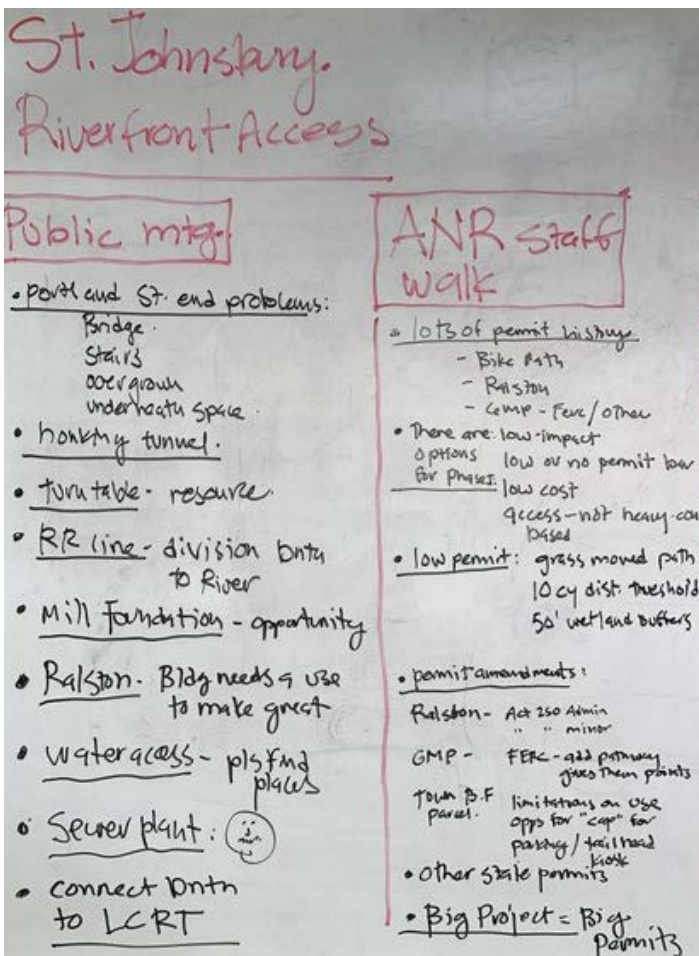 St. Johnsbury.
Riverfront Access
Public mtg.
• portland St. end problems:
Bridge.
Stairs
overgrown
underneath space.
• honking tunnel.
• turntable - resource.
• RR line - division Dntn
to River
• Mill Foundation - opportunity
• Ralston - Bldg needs a use
to make great
• water acess - pls find
places
• Sewer plant:
• connect Dntn
to LCRT
ANR staff
walk
• lots of permit history
- Bike Path
- Ralston
- Ferc/other
• There are: low-impact
options low or no permit
for Phases: low cost
access - not heavy con
based
• low permit: grass mowed path
10 cy dist. threshold
50' wetland buffers
• permit amendments:
Ralston - Act 250 Admin
" " minor
GMP - FERC - add pathway
gives them points
Town B.F limitations on use
parcel. opps for "cap" for
parking / trailhead
kiosk
• other state permits
• Big Project = Big
Permits